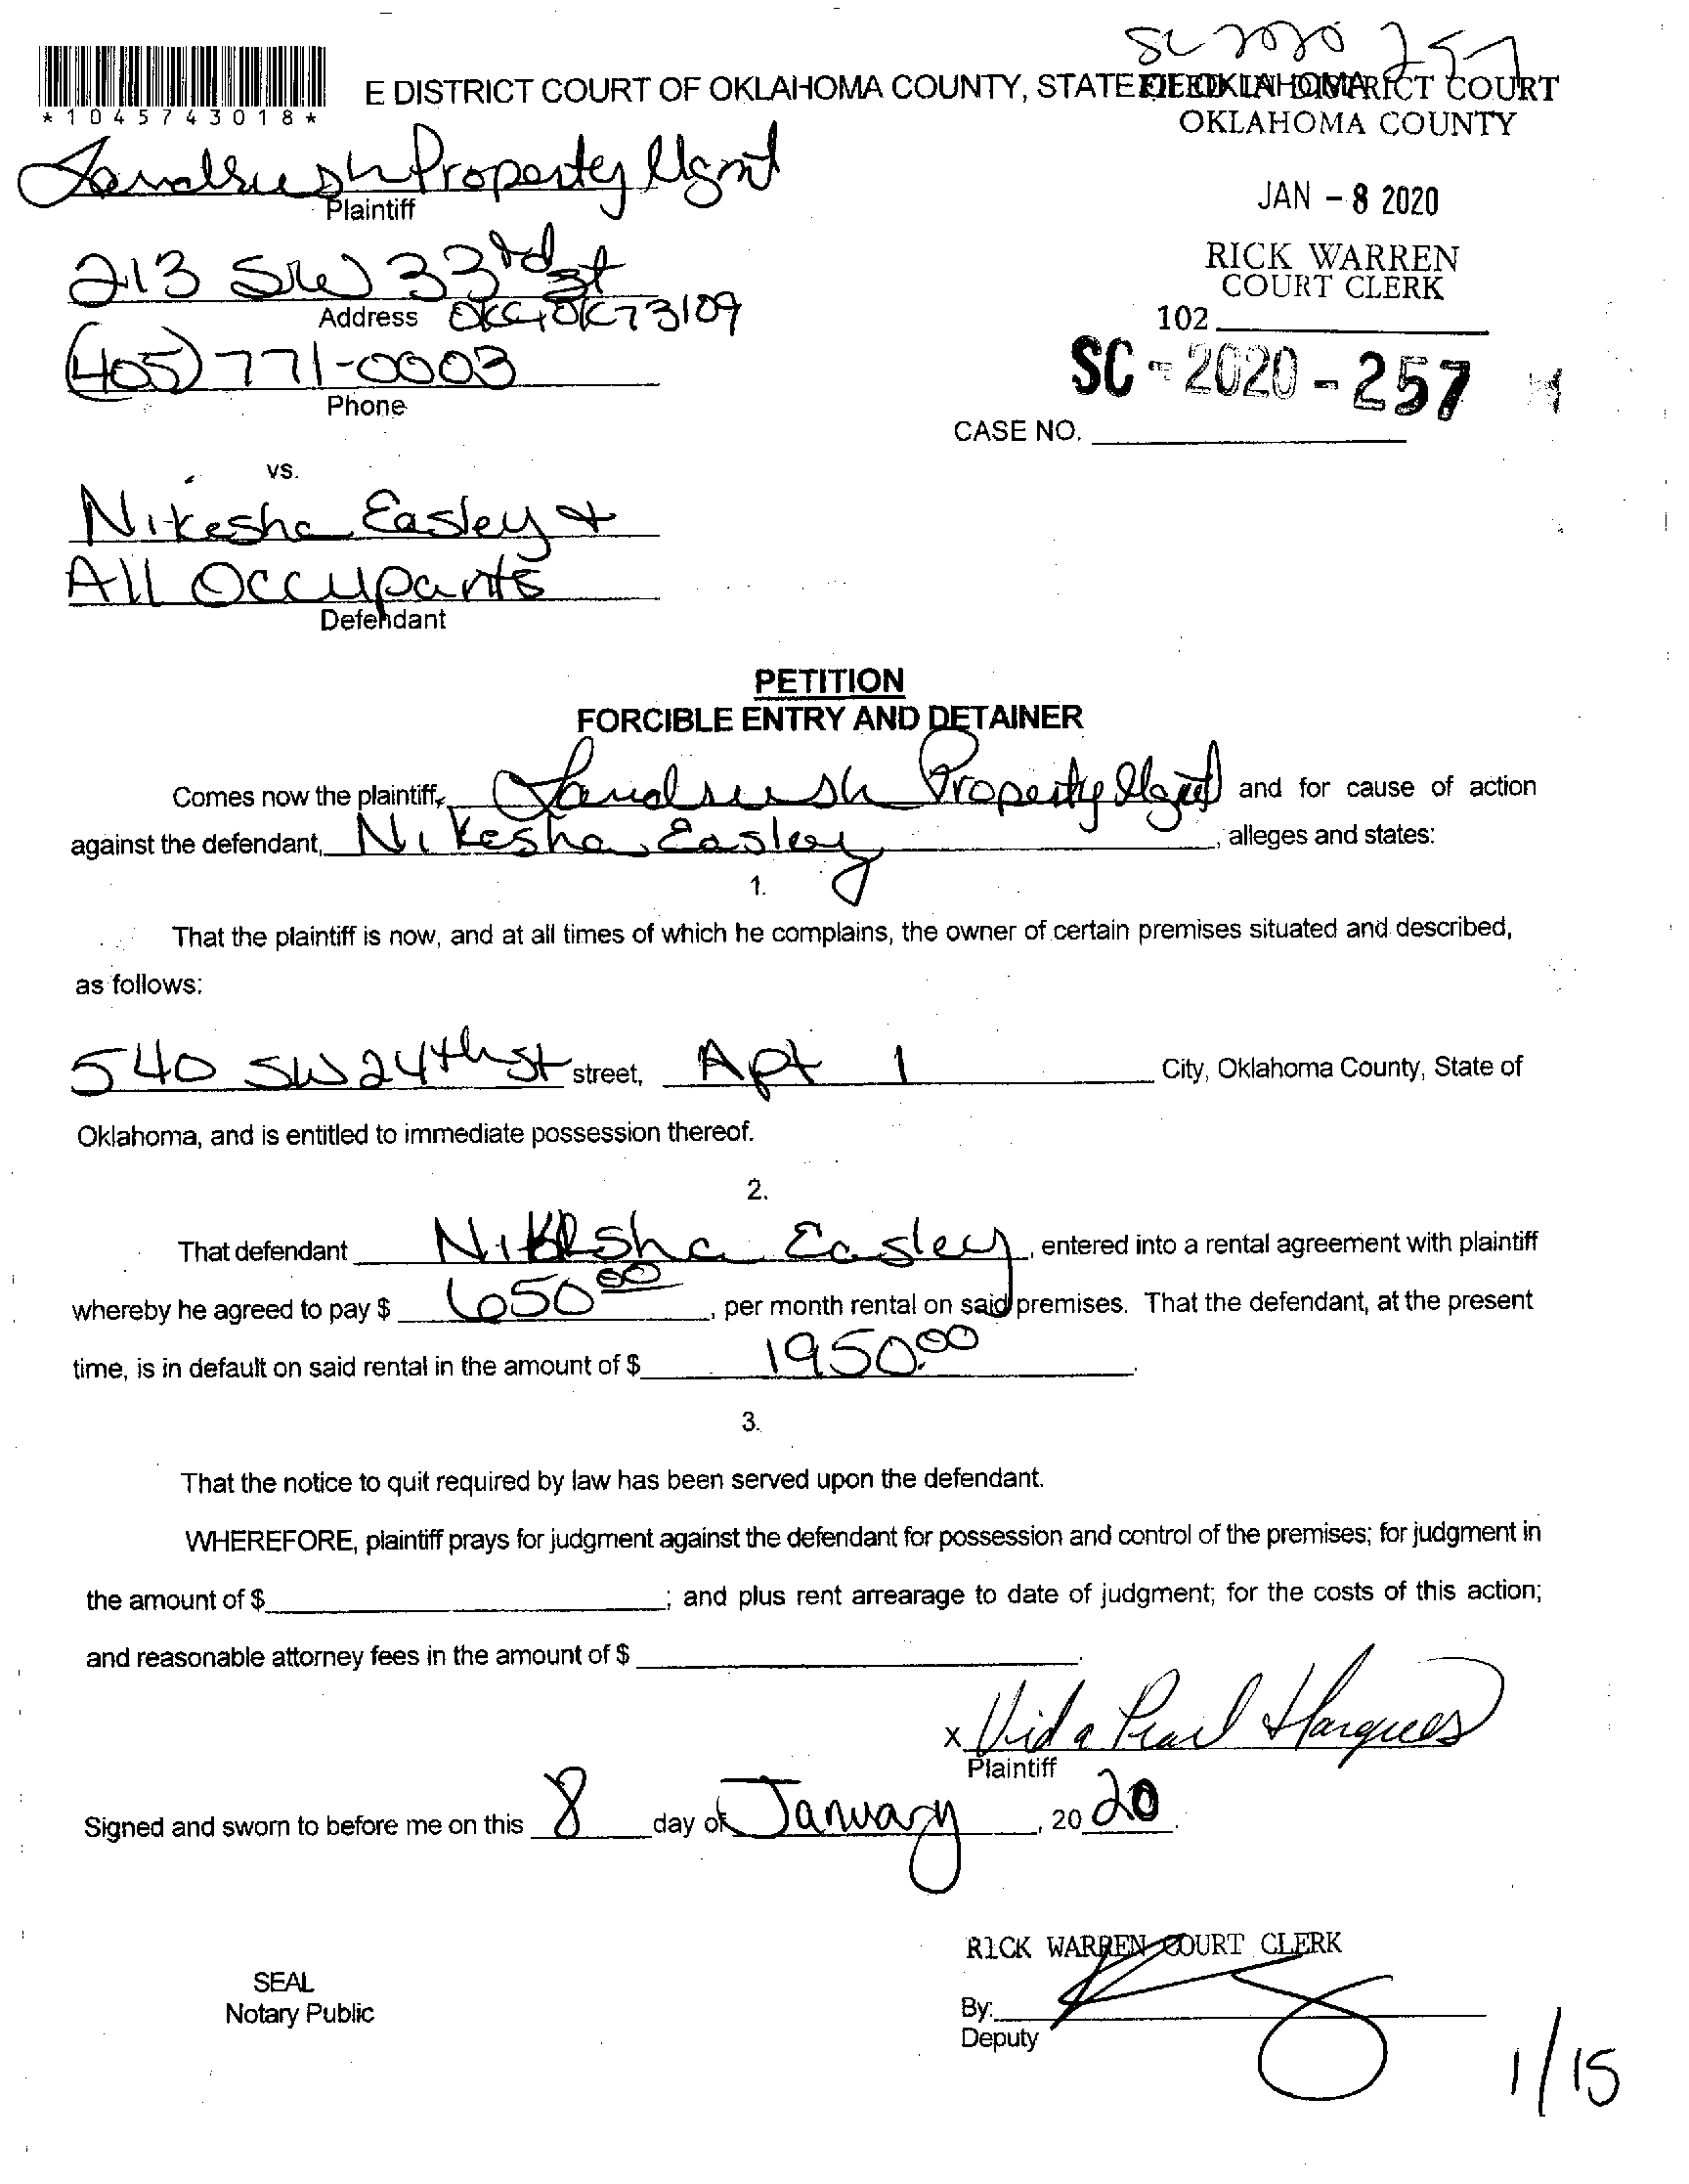 SC 2020 257
E DISTRICT COURT OF OKLAHOMA COUNTY, STATE OF OKLAHOMA
FILED IN DISTRICT COURT
OKLAHOMA COUNTY
*1045743018*
Landrush Property Mgmt
Plaintiff
JAN - 8 2020
213 SW 33rd st
RICK WARREN
COURT CLERK
Address OKC, OK 73109
102
(405) 771-0003
Phone
SC - 2020 - 257
CASE NO.
vs.
Nikesha Easley +
All Occupants
Defendant
PETITION
FORCIBLE ENTRY AND DETAINER
Comes now the plaintiff, Landrush Property Mgmt and for cause of action
against the defendant, Nikesha Easley, alleges and states:
1.
That the plaintiff is now, and at all times of which he complains, the owner of certain premises situated and described,
as follows:
540 SW 24th St street, Apt 1 City, Oklahoma County, State of
Oklahoma, and is entitled to immediate possession thereof.
2.
That defendant Nikesha Easley, entered into a rental agreement with plaintiff
whereby he agreed to pay $ 650.00, per month rental on said premises. That the defendant, at the present
time, is in default on said rental in the amount of $ 1950.00.
3.
That the notice to quit required by law has been served upon the defendant.
WHEREFORE, plaintiff prays for judgment against the defendant for possession and control of the premises; for judgment in
the amount of $ ; and plus rent arrearage to date of judgment; for the costs of this action;
and reasonable attorney fees in the amount of $ .
x Vida Pearl Harques
Plaintiff
Signed and sworn to before me on this 8 day of January, 2020.
RICK WARREN COURT CLERK
SEAL
Notary Public
By:
Deputy
1/15